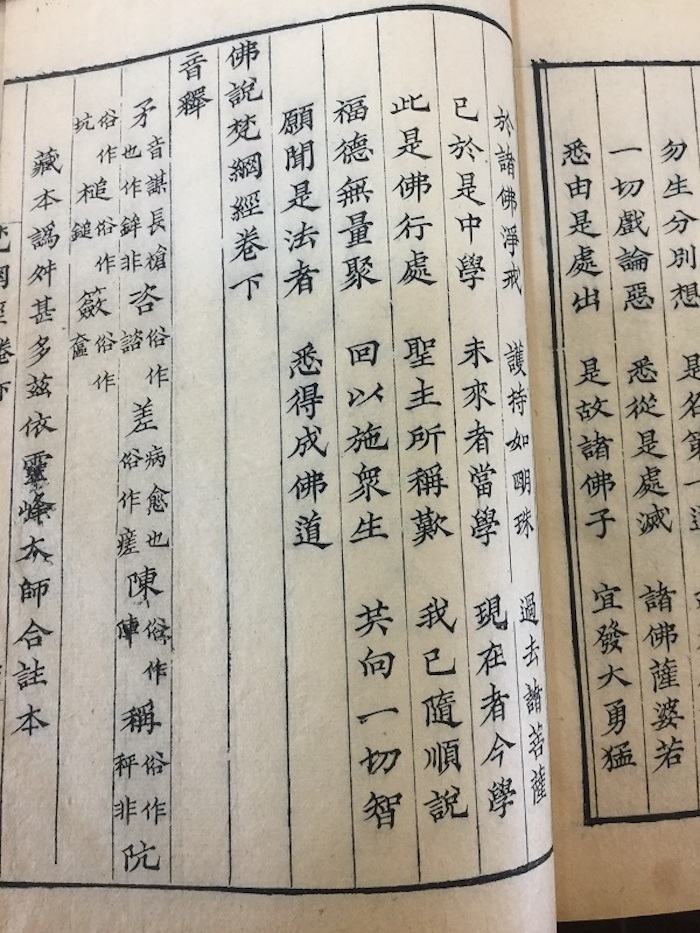 勿生分別想 是名第一道
一切戲論惡 悉從是處滅 諸佛薩婆若
悉由是處出 是故諸佛子 宜發大勇猛
於諸佛淨戒 護持如明珠 過去諸菩薩
已於是中學 未來者當學 現在者今學
此是佛行處 聖主所稱歎 我已隨順說
福德無量聚 回以施衆生 共向一切智
願聞是法者 悉得成佛道
佛說梵網經卷下
音釋
矛音謀長槍也作鉾非 咨俗作諮 差病愈也俗作瘥 陳俗作陣 稱俗作秤非 阬
俗作坑 槌俗作鎚 籢俗作奩
藏本譌舛甚多茲依靈峰大師合註本
梵網經卷下